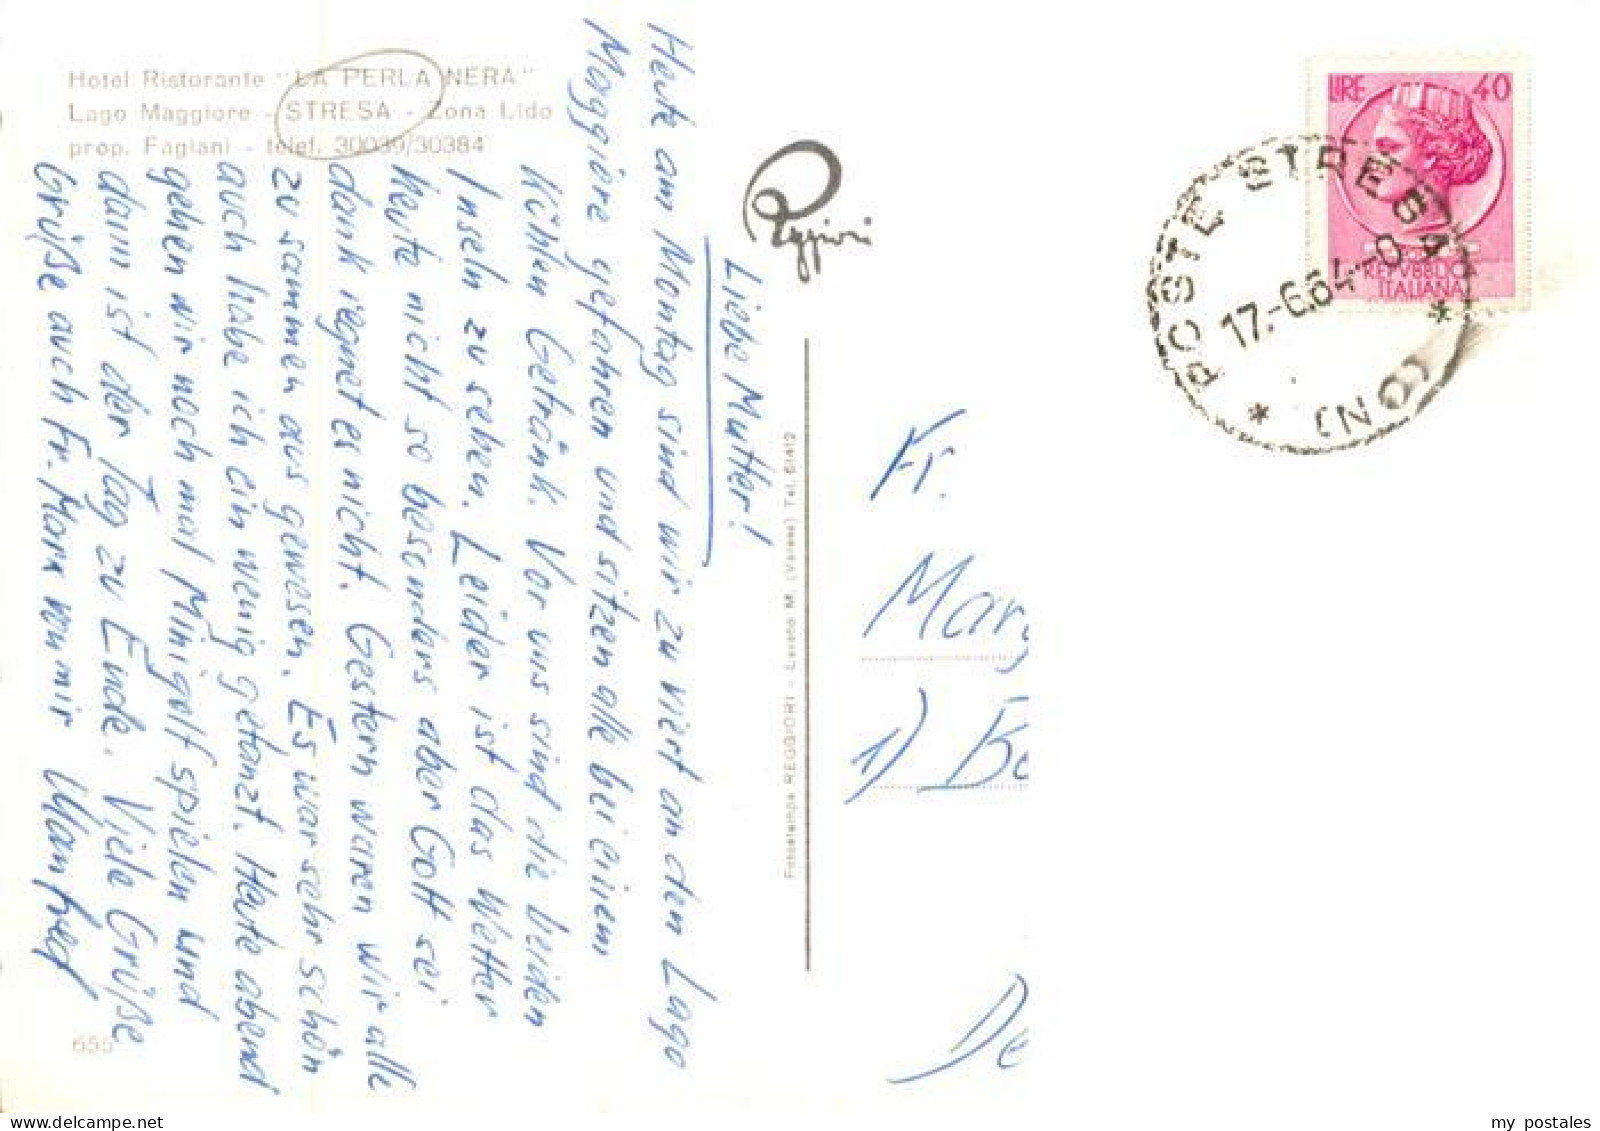 Hotel Ristorante "LA PERLA NERA"
Lago Maggiore - STRESA - Zona Lido
prop. Fagiani - telef. 30039/30384
Liebe Mutter!
Heute am Montag sind wir zu viert an den Lago
Maggiore gefahren und sitzen alle bei einem
kühlen Getränk. Vor uns sind die beiden
Inseln zu sehen. Leider ist das Wetter
heute nicht so besonders aber Gott sei
dank regnet es nicht. Gestern waren wir alle
zusammen aus gewesen. Es war sehr schön
auch habe ich ein wenig getanzt. Heute abend
gehen wir noch mal Minigolf spielen und
dann ist der Tag zu Ende. Viele Grüße
Grüße auch Fr. Horn von mir Manfred
655
Reggiori
Fotostampa REGGIORI - Laveno M. (Varese) Tel. 61412
LIRE 40
REPVBBLICA
ITALIANA
POSTE STRESA
17.-6.64.-0
(NO)
Fr.
Marg
1) Be
De
my postales